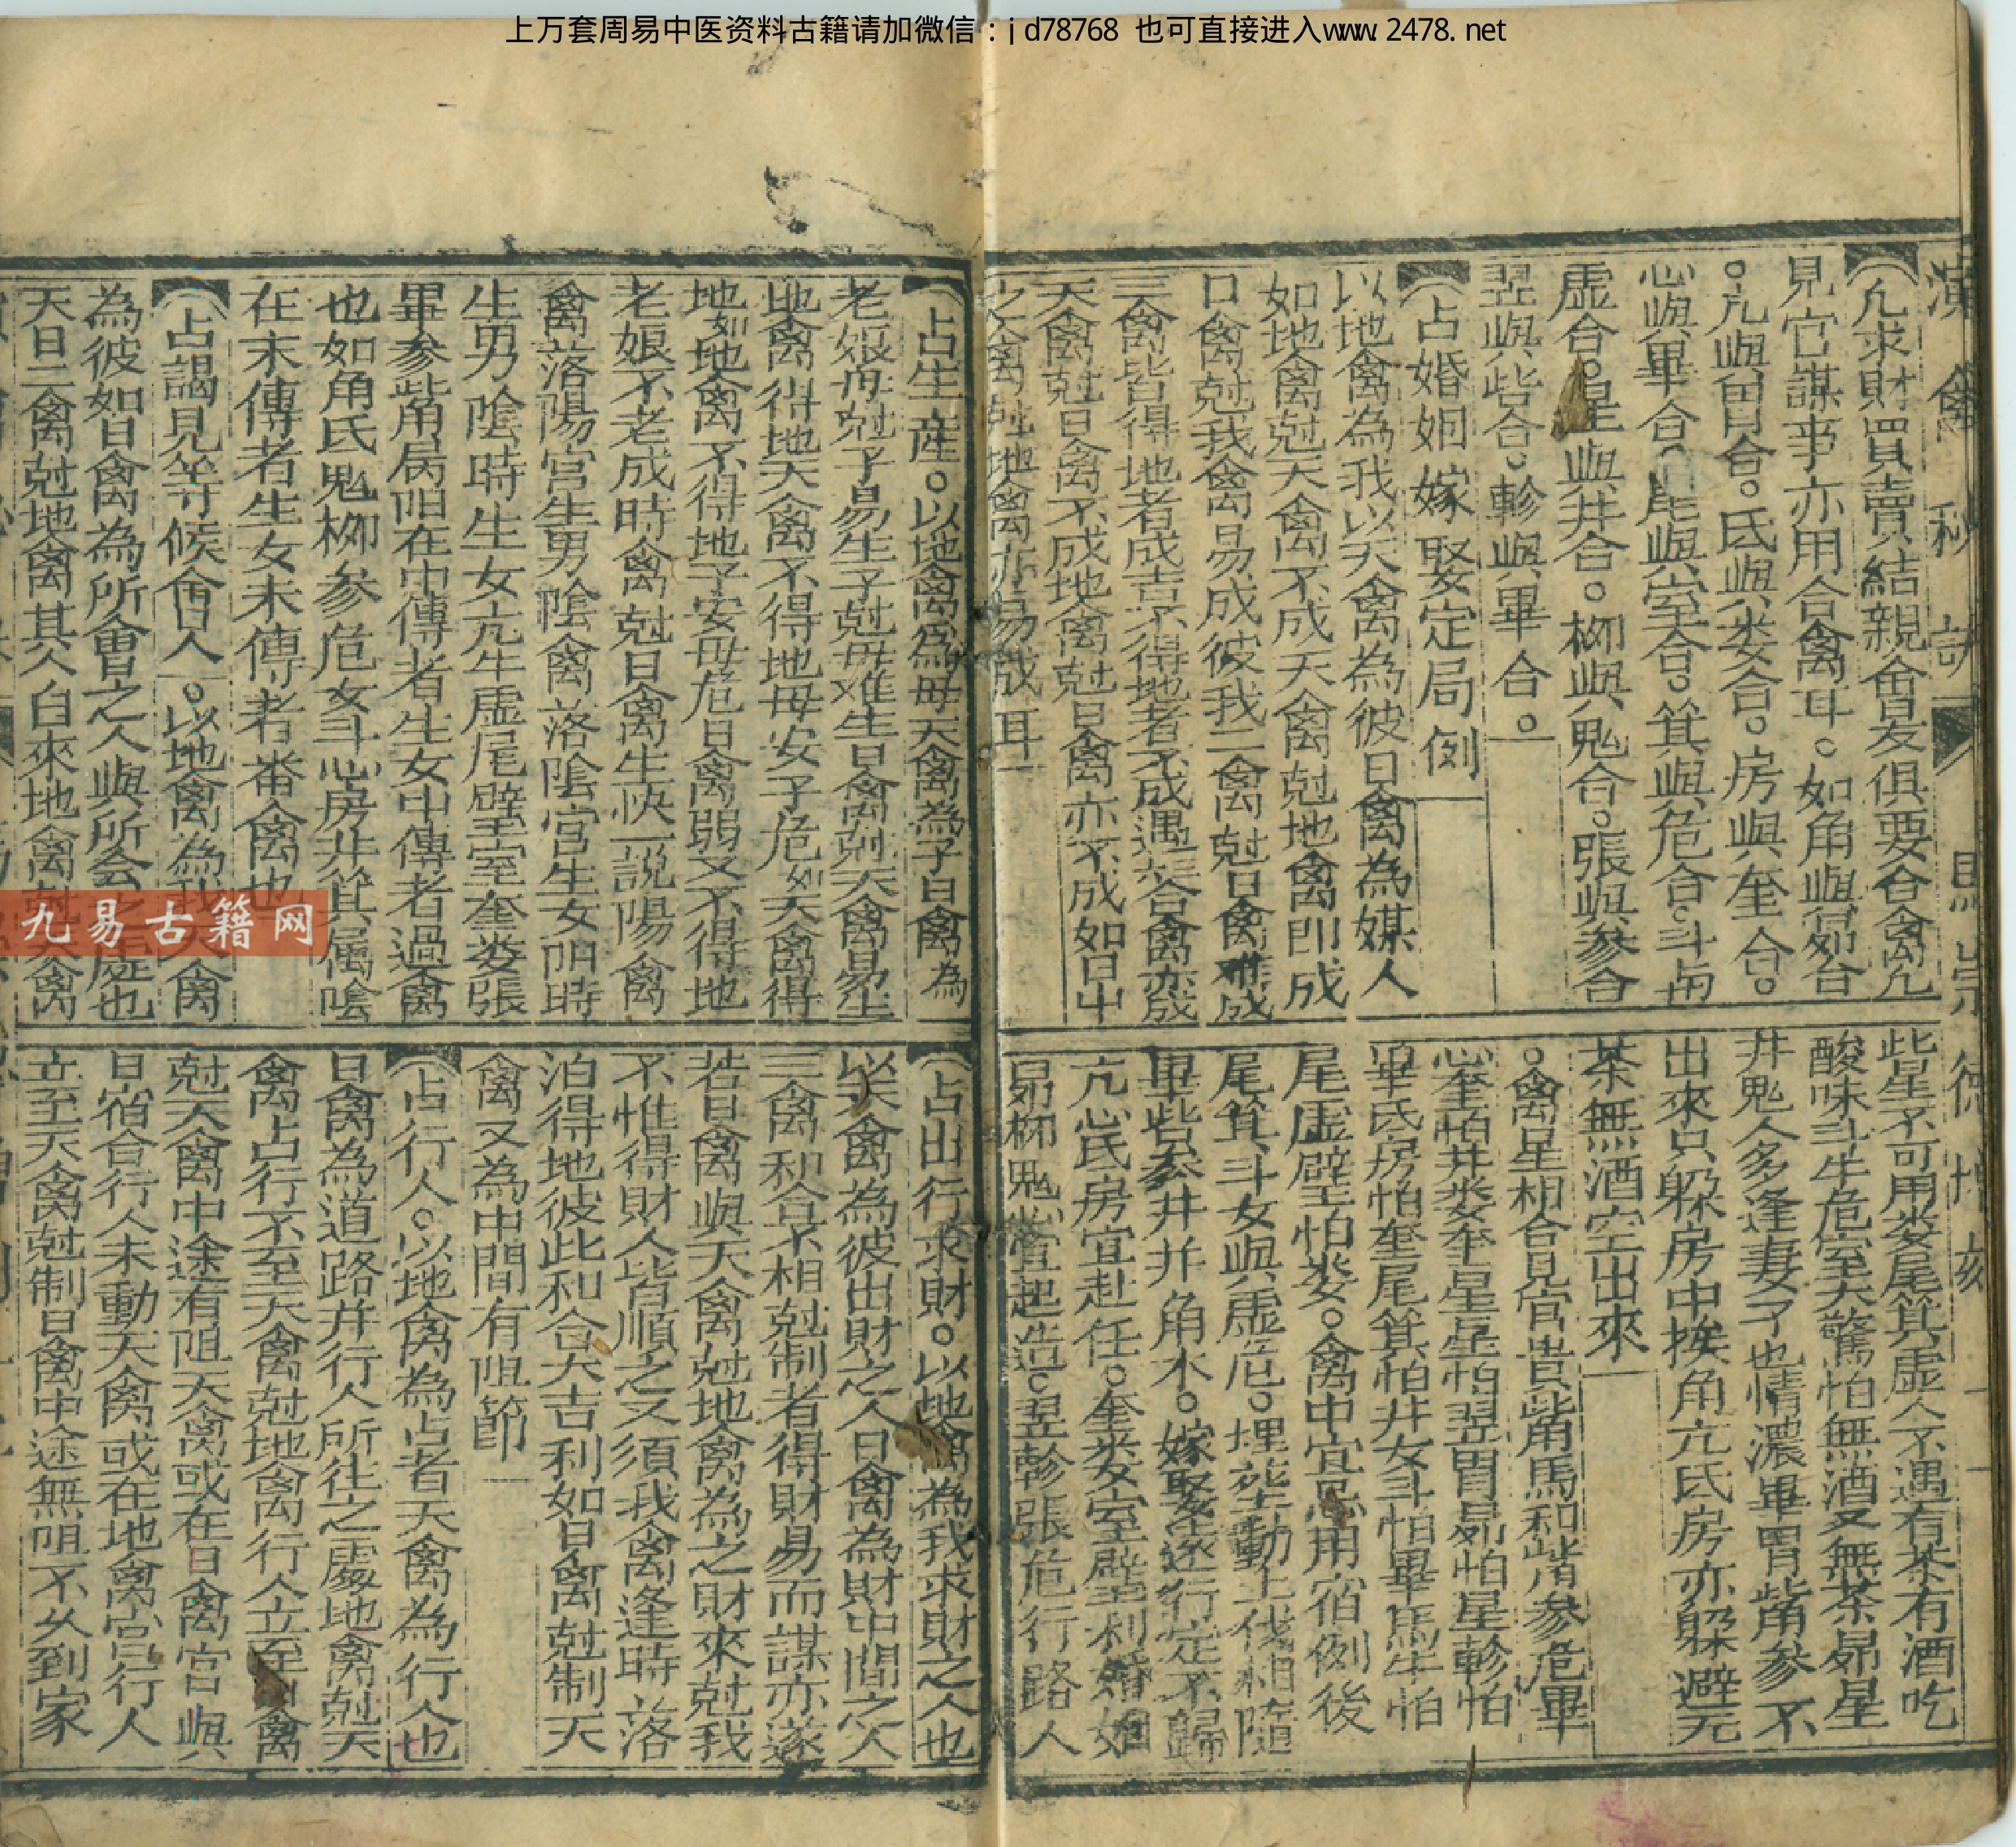 上万套周易中医资料古籍请加微信：jd78768 也可直接进入www.2478.net
演禽秘訣
凢求財買賣結親會晏俱要合禽凢
見官謀事亦用合禽耳。如角與昴合
。亢與胃合。氐與娄合。房與奎合。
心與畢合。尾與室合。箕與危合。斗與
虛合。星與井合。柳與鬼合。張與參合
翌與觜合。軫與畢合。
占婚姻嫁娶定局例
以地禽為我以天禽為彼日禽為媒人
如地禽尅天禽不成天禽尅地禽即成
日禽尅我禽易成彼我二禽尅日禽難成
三禽皆得地者成吉不得地者不成遇六合禽亦成
天禽尅日禽不成地禽尅日禽亦不成如日中
之禽尅地禽亦易成耳
此星不可用娄尾箕虛今不遇有茶有酒吃
酸味斗牛危室大驚怕無酒又無茶昴星
井鬼人多逢妻子也情濃畢胃觜參不
出來只躱房中挨角亢氐房亦躱避元
茶無酒空出來
。禽星相合見官貴觜馬和觜參危畢
心奎怕井娄奎星星怕翌胃昴怕星軫怕
畢氐房怕奎尾箕怕井女斗怕畢馬牛怕
尾虛壁怕娄。禽中宜忌用宿例後
尾箕斗女與虛危。埋塟動土伐相隨
畢觜參井并角木。嫁娶遠行定不歸
亢心氐房宜赴任。奎娄室壁利婚姻
昴柳鬼心宜起造。翌軫張危行路人
占生産。以地禽為母天禽為子日禽為
老娘母尅子易生子尅母难生日禽尅天禽易生
地禽得地天禽不得地母安子危如天禽得
地如地禽不得地子安母危日禽弱又不得地
老娘不老成時禽尅日禽生快一說陽禽
禽落陽宮生男陰禽落陰宮生女陽時
生男陰時生女亢牛虛尾壁室奎娄張
畢參觜角病陽在中傳者生女中傳者過禽
也如角氐鬼柳參危女斗心房井箕属陰
在末傳者生女末傳者番禽也
占謁見等候會人。以地禽為我天禽
為彼如日禽為所會之人與所会之處也
天日二禽尅地禽其人自來地禽尅天禽
占出行求財。以地禽為我求財之人也
以天禽為彼出財之人日禽為財中間之人
三禽和合不相尅制者得財易而謀亦遂
若日禽與天禽尅地禽為之財來尅我
不惟得財人皆順之又須我禽逢時落
泊得地彼此和合大吉利如日禽尅制天
禽又為中間有阻節
占行人。以地禽為占者天禽為行人也
日禽為道路并行人所往之處地禽尅天
禽占行不至天禽尅地禽行人立至日禽
尅天禽中途有阻天禽或在日禽宮與
日宿合行人未動天禽或在地禽宮行人
立至天禽尅制日禽中途無阻不久到家
九易古籍网